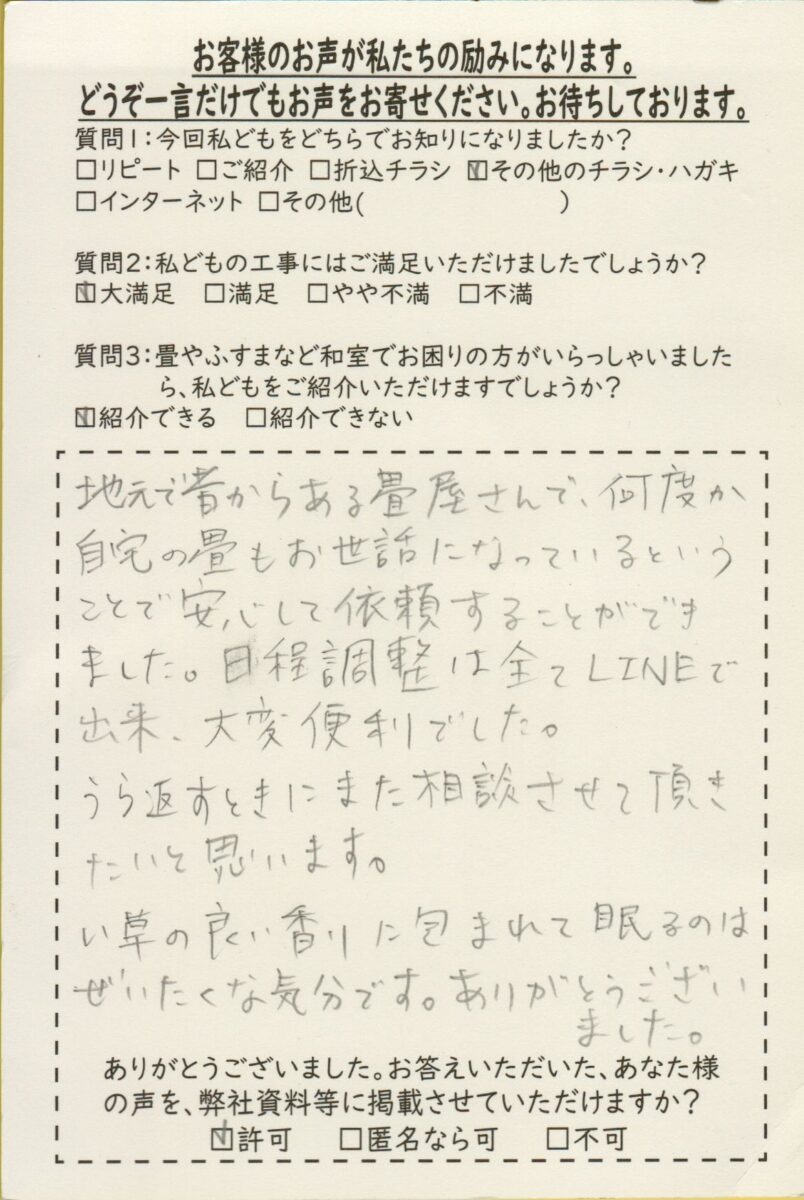 お客様のお声が私たちの励みになります。
どうぞ一言だけでもお声をお寄せください。お待ちしております。
質問1:今回私どもをどちらでお知りになりましたか?
□リピート □ご紹介 □折込チラシ ☑その他のチラシ・ハガキ
□インターネット □その他( )
質問2:私どもの工事にはご満足いただけましたでしょうか?
☑大満足 □満足 □やや不満 □不満
質問3:畳やふすまなど和室でお困りの方がいらっしゃいました
ら、私どもをご紹介いただけますでしょうか?
☑紹介できる □紹介できない
地元で昔からある畳屋さんで、何度か
自宅の畳もお世話になっているという
ことで安心して依頼することができ
ました。日程調整は全てLINEで
出来、大変便利でした。
うら返すときにまた相談させて頂き
たいと思います。
い草の良い香りに包まれて眠るのは
ぜいたくな気分です。ありがとうござい
ました。
ありがとうございました。お答えいただいた、あなた様
の声を、弊社資料等に掲載させていただけますか?
☑許可 □匿名なら可 □不可